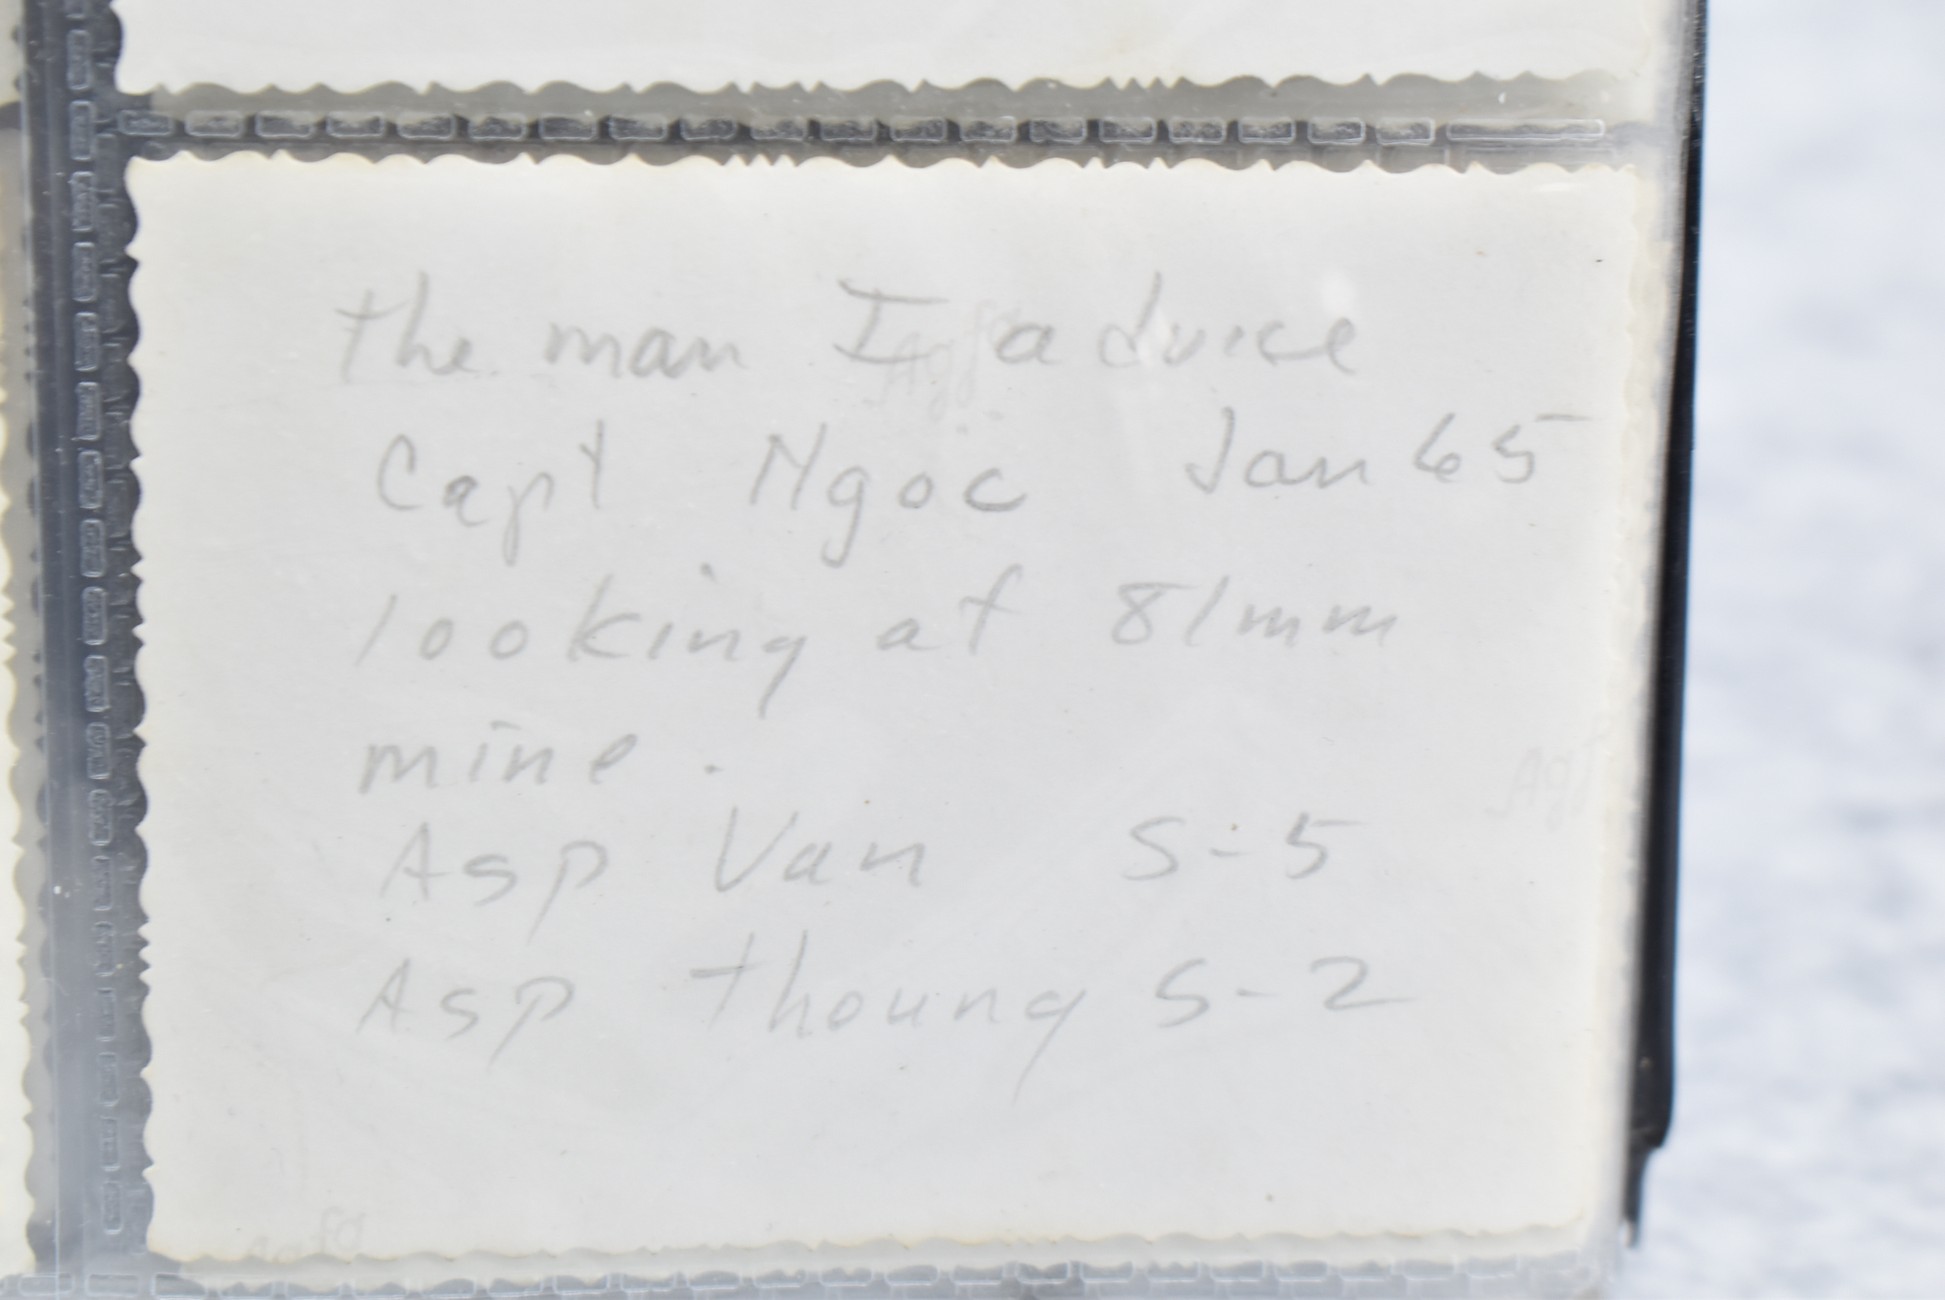 the man I advice
Capt Ngoc Jan 65
looking at 81mm
mine.
Asp Van S-5
Asp Thoung S-2
Agfa